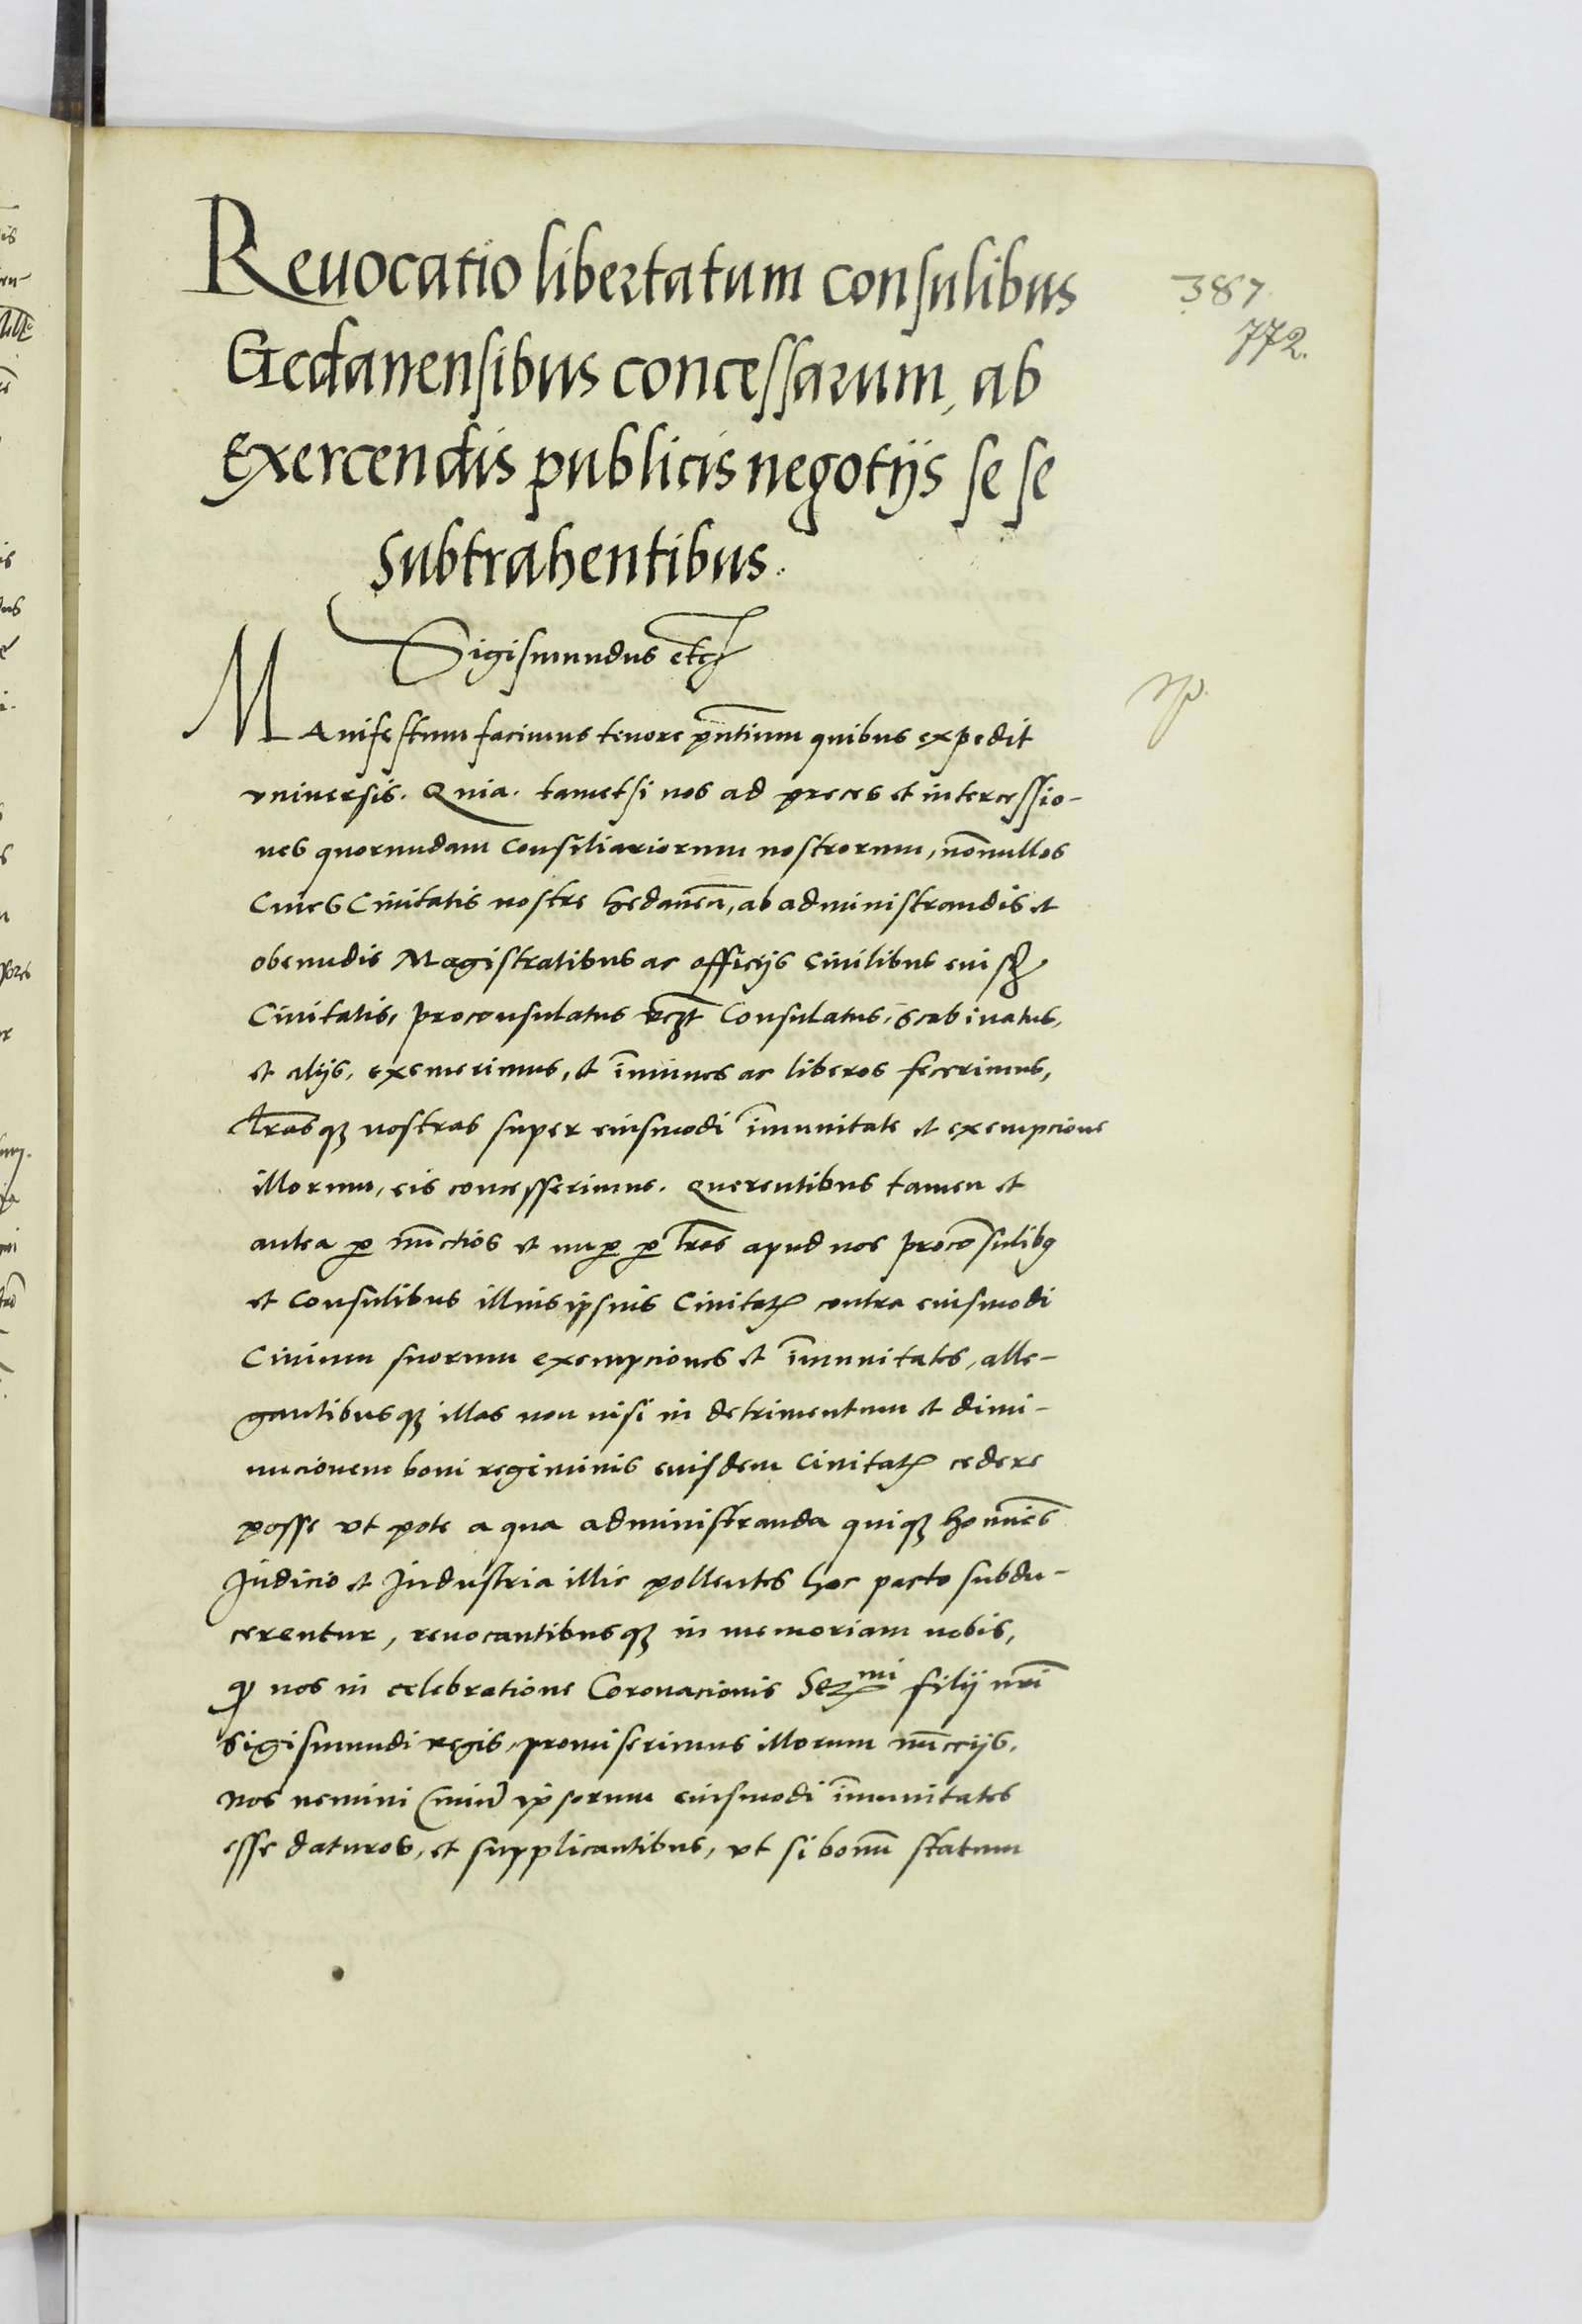 Reuocatio libertatum consulibus
387
772.
Gedanensibus concessarum, ab
Exercendis publicis negotijs se se
subtrahentibus.
Sigismundus etc
MAnifestum facimus tenore pñtium quibus expedit
vniuersis. Quia. tametsi nos ad preces et intercessio-
nes quorundam Consiliariorum nostrorum, nõnullos
Ciues Ciuitatis nostre Gedaneñ, ab administrandis et
obeundis Magistratibus ac officijs Ciuilibus
Ciuitatis, proconsulatus Consulatus, Scabinatus,
et alijs, exemerimus, et im̃unes ac liberos fecerimus,
Lr̃asq3 nostras super eiusmodi im̃unitate et exempcione
illorum, eis concesserimus. Querentibus tamen et
antea ꝑ nũctios et nuꝑ ꝑ lr̃as apud nos procõsulibq
et Consulibus illius ipsius Ciuitatꝭ contra eiusmodi
Ciuium suorum exempciones et im̃unitates, alle-
gantibusq3 illas non nisi in detrimentum et dimi-
nucionem boni regiminis eiusdem Ciuitatꝭ cedere
posse vt pote a qua administranda quiq3 homĩes
Judicio et Industria illic pollentes hoc pacto subdu-
cerentur, reuocantibusq3 in memoriam nobis,
ꝙ nos in celebratione Coronacionis Ser^mi filij nr̃i
Sigismundi regis, promiserimus illorum nũccijs,
nos nemini Ciuiũ ipsorum eiusmodi im̃unitates
esse daturos, et supplicantibus, vt si bonũ statum